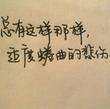 总有这样那样,
歪度蜷曲的悲伤